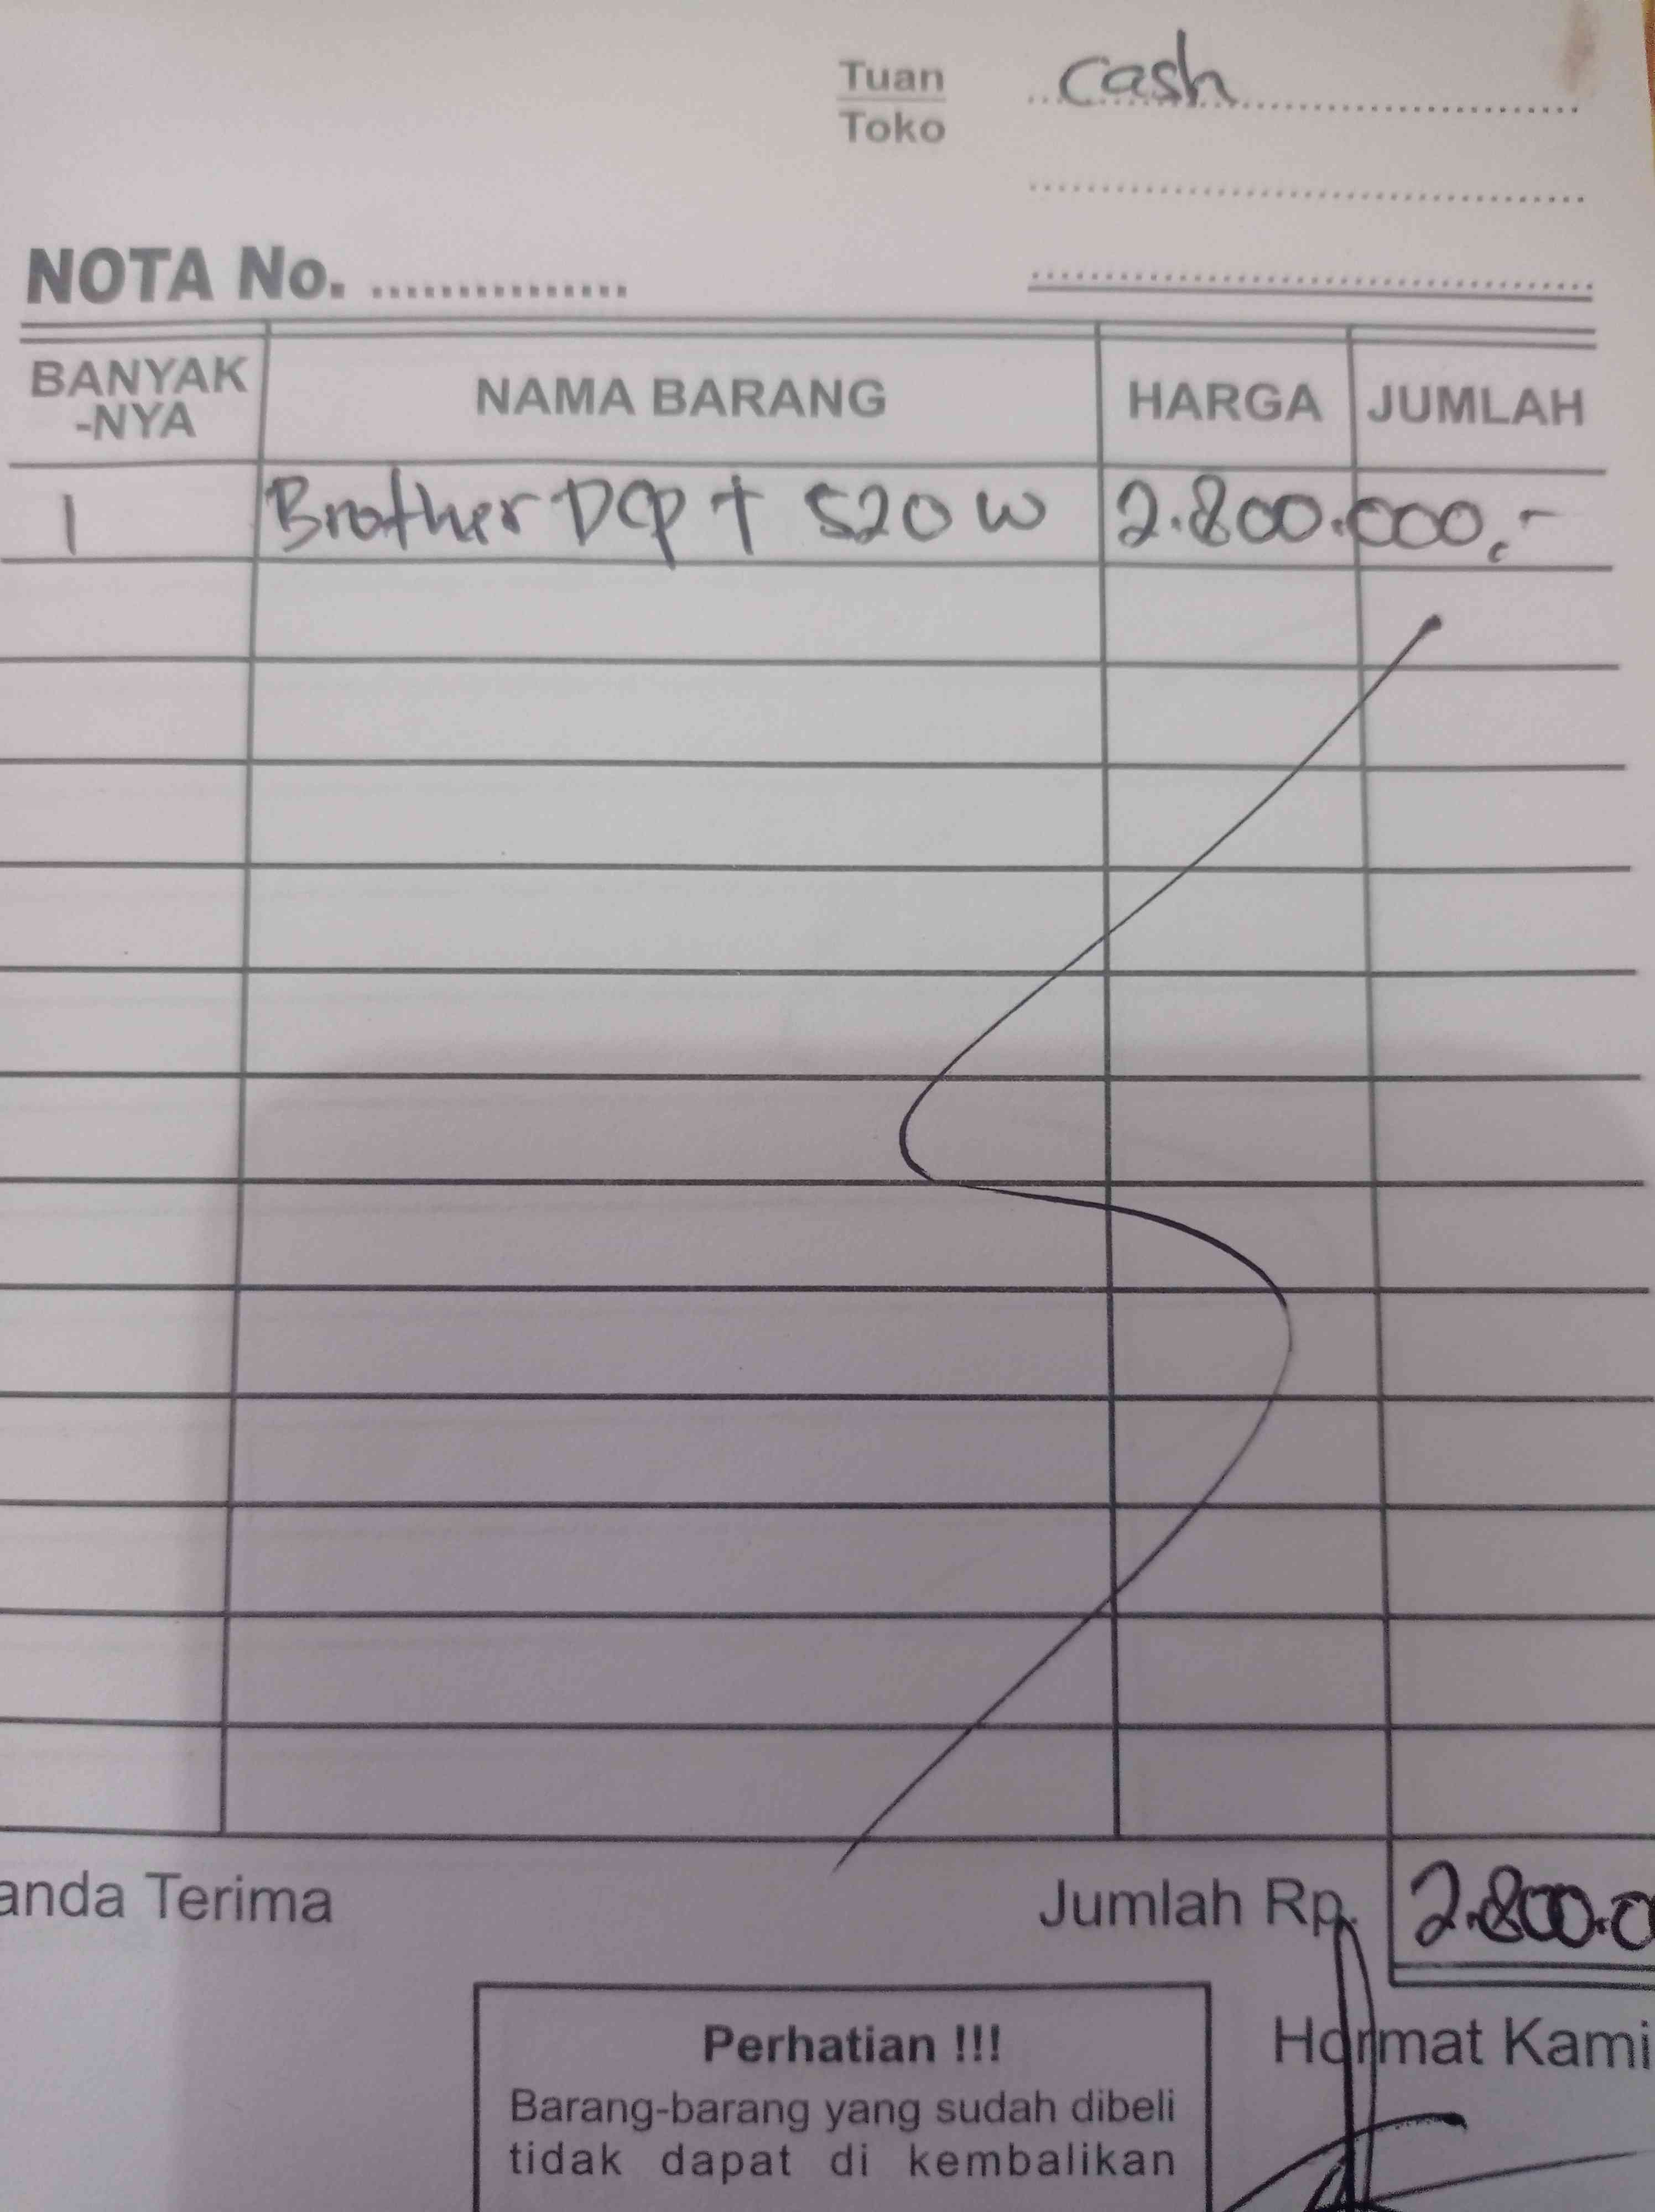 Tuan cash
Toko
NOTA No. ...............
BANYAK NAMA BARANG HARGA JUMLAH
-NYA
1 Brother DCP T 520 W 2.800.000,-
anda Terima Jumlah Rp. 2.800.0
Perhatian !!! Hormat Kami
Barang-barang yang sudah dibeli
tidak dapat di kembalikan